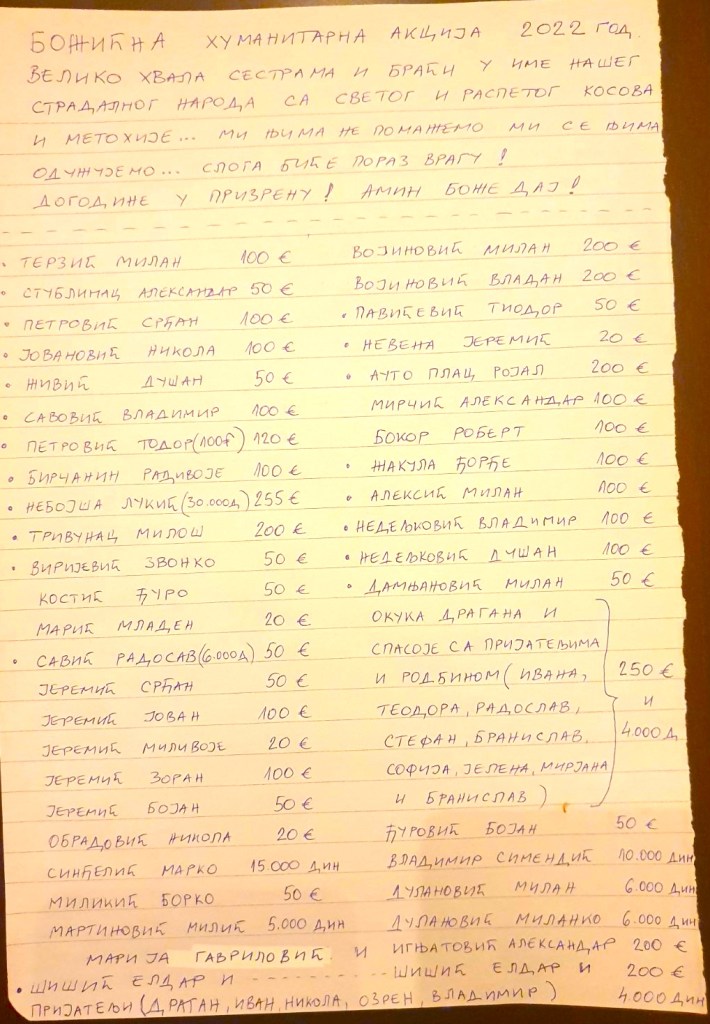 БОЖИЋНА ХУМАНИТАРНА АКЦИЈА 2022 ГОД.
ВЕЛИКО ХВАЛА СЕСТРАМА И БРАЋИ У ИМЕ НАШЕГ
СТРАДАЛНОГ НАРОДА СА СВЕТОГ И РАСПЕТОГ КОСОВА
И МЕТОХИЈЕ... МИ ЊИМА НЕ ПОМАЖЕМО МИ СЕ ЊИМА
ОДУЖУЈЕМО... СЛОГА БИЋЕ ПОРАЗ ВРАГУ!
ДОГОДИНЕ У ПРИЗРЕНУ! АМИН БОЖЕ ДАЈ!
• ТЕРЗИЋ МИЛАН 100 €
• СТУБЛИНАЦ АЛЕКСАНДАР 50 €
• ПЕТРОВИЋ СРЂАН 100 €
• ЈОВАНОВИЋ НИКОЛА 100 €
• ЖИВИЋ ДУШАН 50 €
• САВОВИЋ ВЛАДИМИР 100 €
• ПЕТРОВИЋ ТОДОР (100₣) 120 €
• БИРЧАНИН РАДИВОЈЕ 100 €
• НЕБОЈША ЛУКИЋ (30.000Д) 255 €
• ТРИВУНАЦ МИЛОШ 200 €
• ВИРИЈЕВИЋ ЗВОНКО 50 €
КОСТИЋ ЂУРО 50 €
МАРИЋ МЛАДЕН 20 €
• САВИЋ РАДОСАВ (6.000Д) 50 €
ЈЕРЕМИЋ СРЂАН 50 €
ЈЕРЕМИЋ ЈОВАН 100 €
ЈЕРЕМИЋ МИЛИВОЈЕ 20 €
ЈЕРЕМИЋ ЗОРАН 100 €
ЈЕРЕМИЋ БОЈАН 50 €
ОБРАДОВИЋ НИКОЛА 20 €
СИНЂЕЛИЋ МАРКО 15.000 ДИН
МИЛИКИЋ БОРКО 50 €
МАРТИНОВИЋ МИЛИЋ 5.000 ДИН
ВОЈИНОВИЋ МИЛАН 200 €
ВОЈИНОВИЋ ВЛАДАН 200 €
• ПАВИЋЕВИЋ ТИОДОР 50 €
• НЕВЕНА ЈЕРЕМИЋ 20 €
• АУТО ПЛАЦ РОЈАЛ 200 €
МИРЧИЋ АЛЕКСАНДАР 100 €
БОКОР РОБЕРТ 100 €
• ЖАКУЛА ЂОРЂЕ 100 €
• АЛЕКСИЋ МИЛАН 100 €
• НЕДЕЉКОВИЋ ВЛАДИМИР 100 €
• НЕДЕЉКОВИЋ ДУШАН 100 €
• ДАМЊАНОВИЋ МИЛАН 50 €
ОКУКА ДРАГАНА И
СПАСОЈЕ СА ПРИЈАТЕЉИМА
И РОДБИНОМ (ИВАНА, 250 €
ТЕОДОРА, РАДОСЛАВ, И
СТЕФАН, БРАНИСЛАВ, 4.000 Д
СОФИЈА, ЈЕЛЕНА, МИРЈАНА
И БРАНИСЛАВ)
ЂУРОВИЋ БОЈАН 50 €
ВЛАДИМИР СИМЕНДИЋ 10.000 ДИН
ДУЛАНОВИЋ МИЛАН 6.000 ДИН
ДУЛАНОВИЋ МИЛАНКО 6.000 ДИН
МАРИЈА ГАВРИЛОВИЋ И ИГЊАТОВИЋ АЛЕКСАНДАР 200 €
• ШИШИЋ ЕЛДАР И - - - - - - - - - ШИШИЋ ЕЛДАР И 200 €
ПРИЈАТЕЉИ (ДРАГАН, ИВАН, НИКОЛА, ОЗРЕН, ВЛАДИМИР) 4.000 ДИН